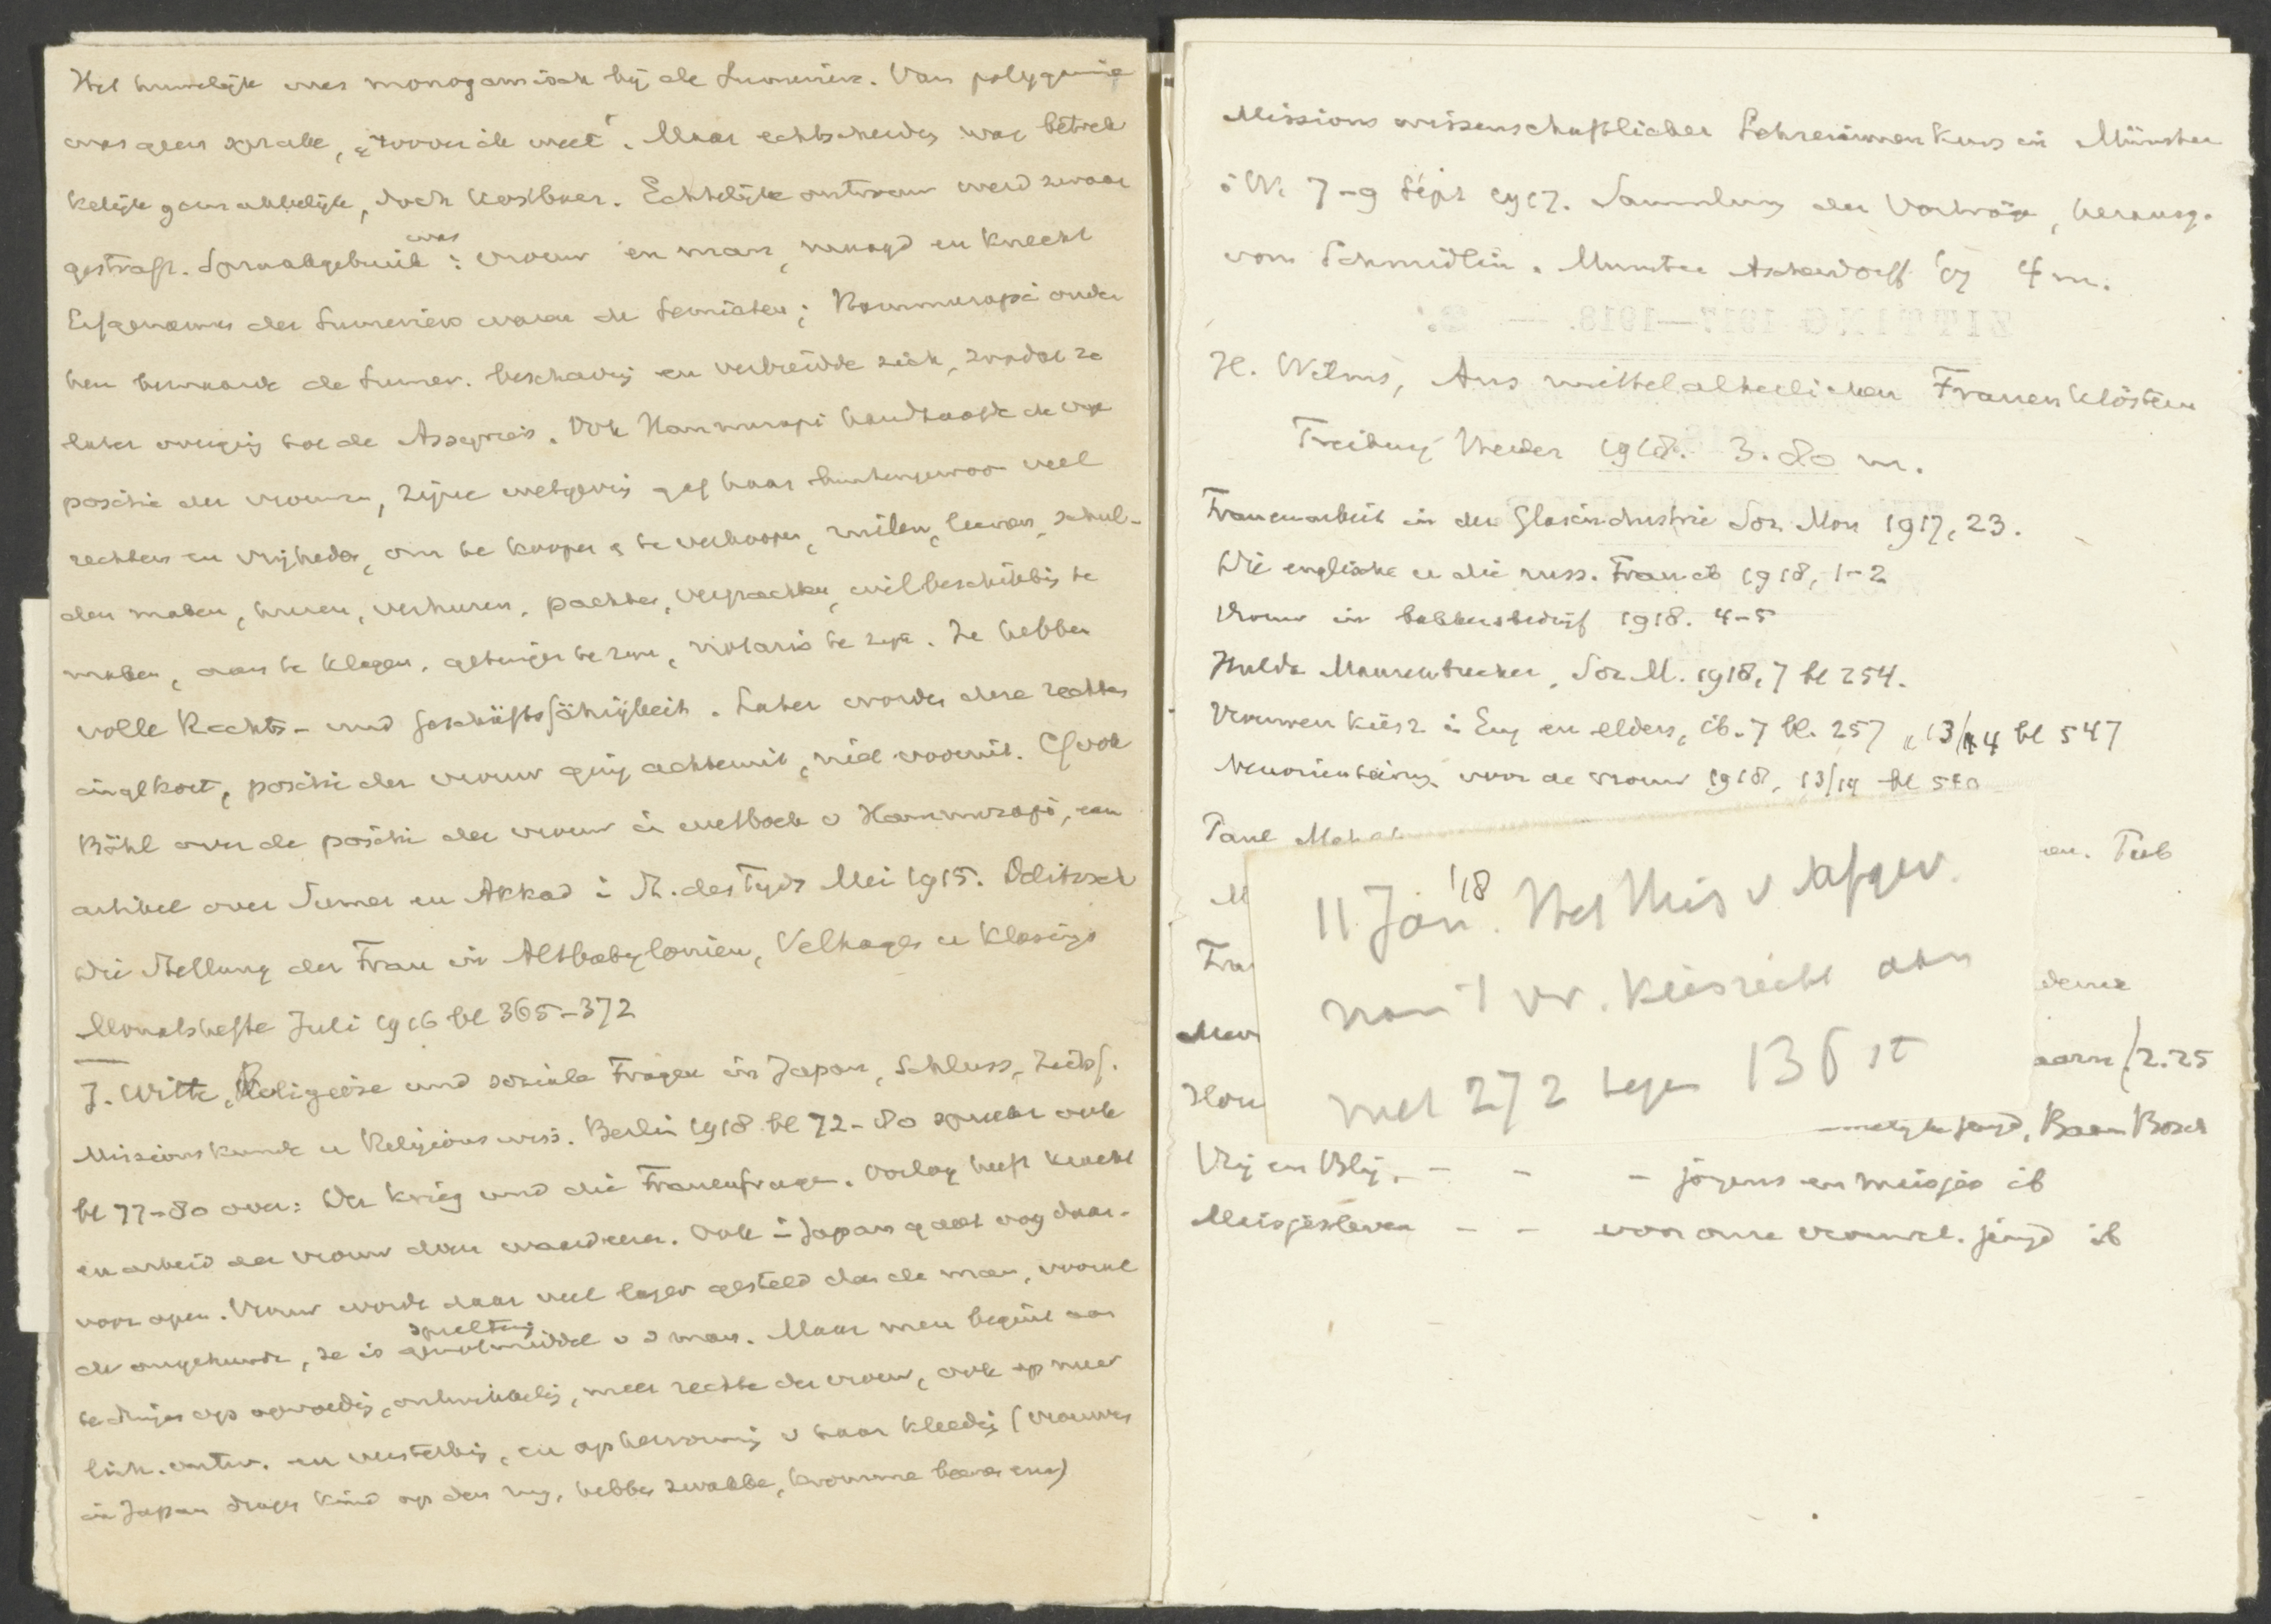 Het huwelijk was monogamisch bij de Sumeriërs. Van polygamie
was geen sprake, "zoover ik weet". Maar echtscheidg was betrek
kelijk gemakkelijk, doch kostbaar. Echtelijke ontrouw werd zwaar
gestraft. Spraakgebruik was: vrouw en man, maagd en knecht
Erfgenamen der Sumeriërs waren de Semieten; Hammurapi onder
hen bewaarde de Sumer. beschavig en verbreidde zich, zoodat ze
later overging tot de Assyriërs. Ook Hammurapi handhaafde de
positie der vrouwen, zijne wetgevig gaf haar buitengewoon veel
rechten en vrijheden, om te koopen & te verkoopen, ruilen, leenen, schul-
den maken, huren, verhuren, pachten, verpachten, wilbeschikkig te
maken, aan te klagen, getuige te zijn, notaris te zijn. Ze hebben
volle Rechts- und Geschäftsfähigkeit. Later worden deze rechten
ingekort, positie der vrouw ging achteruit, niet vooruit. Cf ook
Böhl over de positie der vrouw in wetboek v Hammurapi, een
artikel over Sumer en Akkad i St. des Tijds Mei 1915. Delitzsch
Die Stellung der Frau in Altbabylonien, Velhagen u Klasings
Monatshefte Juli 1916 bl 365-372
J. Witte, Religiöse und soziale Fragen in Japan, Schluss, Zeitsf.
Missionskunde u Religionswiss. Berlin 1918 bl 72-80 spreekt ook
bl 77-80 over: Der Krieg und die Frauenfrage. Oorlog heeft kracht
en arbeid der vrouw doen waardeeren. Ook i Japan gaat oog daar-
voor open. Vrouw wordt daar veel lager gesteld dan de man, vooral
de ongehuwde, ze is genotmiddel speeltuig v d man. Maar men begint aan
te dringen op opvoedig, ontwikkelig, meer rechten der vrouw, ook op meer
lich. ontw. en versterkig, en op hervormig v haar kleedig (vrouwen
in Japan dragen kind op den rug, hebben zwakke, kromme beenen enz)
Missionswissenschaftlicher Lehrerinnenkurs in Münster
i W. 7-9 Sept 1917. Sammlung der Vorträge, herausg.
von Schmidlin. Munster Aschendorff '17 4 m.
H. Wilms, Aus mittelalterlichen Frauenklöstern
Freiburg Herder 1918. 3.80 m.
Frauenarbeit in der Glasindustrie Soz Mon 1917, 23.
Die englische u die russ. Frau ib 1918, 1-2
Vrouw in bakkersbedrijf 1918. 4-5
Hulda Maurenbrecher, Soz. M. 1918, 7 bl 254.
Vrouwenkiesr. i Eng en elders, ib. 7 bl. 257 " 13/14 bl 547
Neuorientierung voor de vrouw 1918, 13/14 bl 580
Paul en. Tub
M
Fra derne
Mev
Hou aarn f 2.25
jeugd, Baarn Bosch
Vrij en Blij. - - - jongens en meisjes ib
Meisjesleven - - voor onze vrouwel. jeugd ib
11 Jan '18. Het Huis v Afgev.
nam 't vr. kiesrecht aan
met 272 tegen 136 st